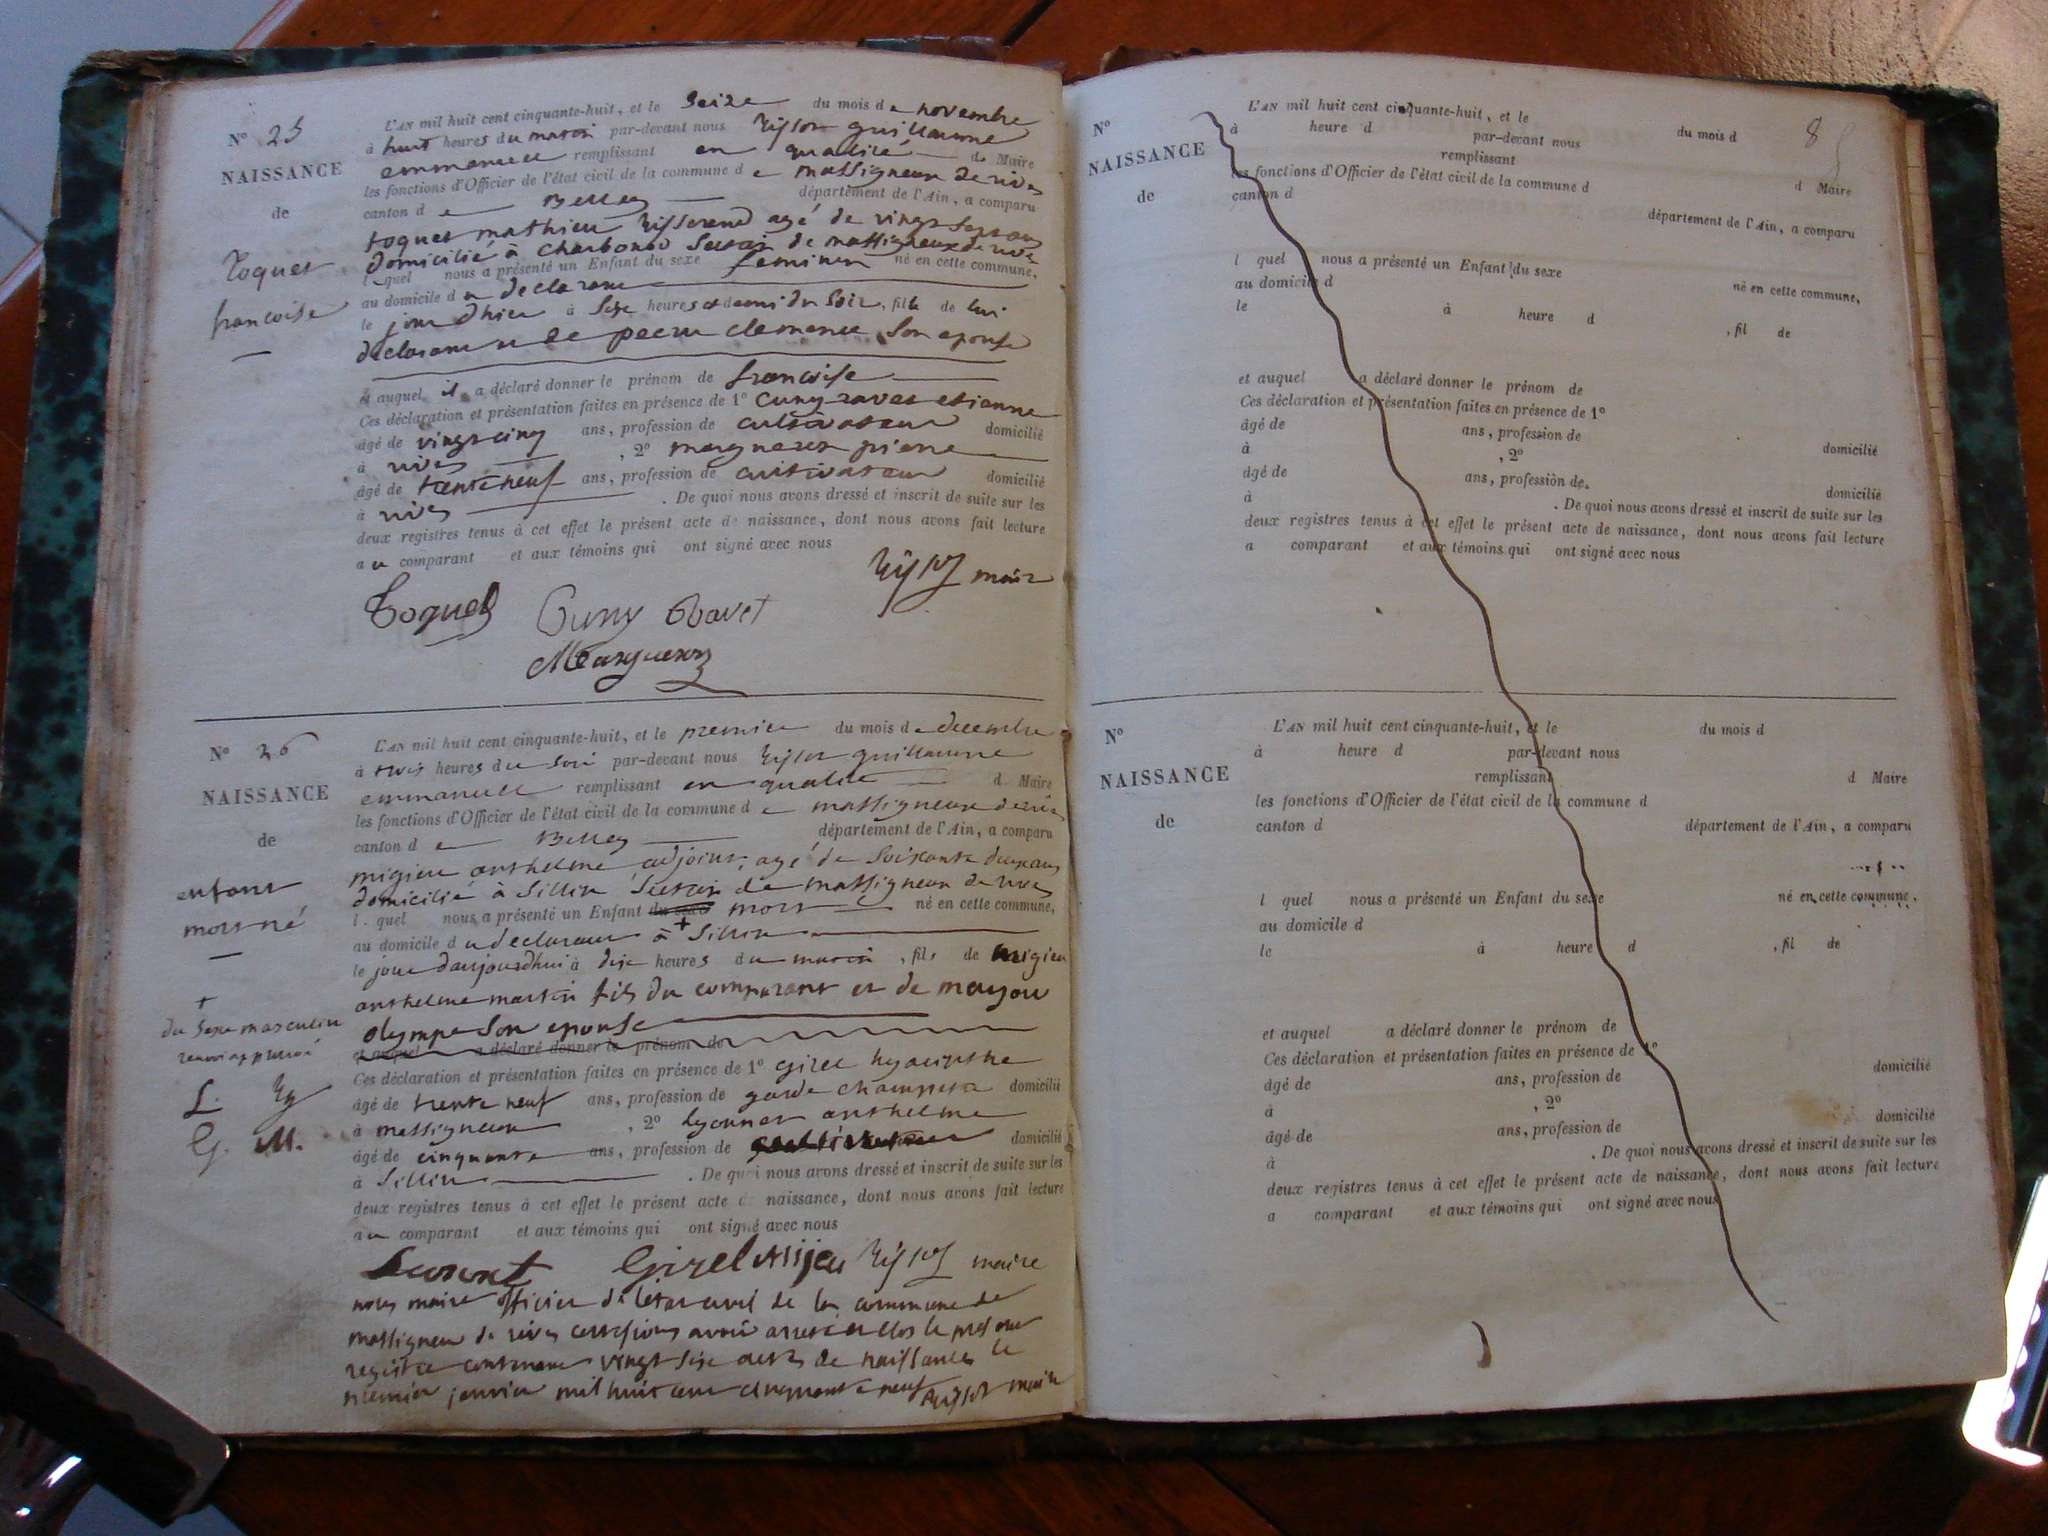 N° 25
NAISSANCE
de
Toquet
francoise
L'AN mil huit cent cinquante-huit, et le Seize du mois de novembre
à huit heures du matin par-devant nous guillaume
emmanuel remplissant en qualité de Maire
les fonctions d'Officier de l'état civil de la commune de massigneux de rives
canton de Belley département de l'Ain, a comparu
toquet mathieu agé de vingt
domicilié à charbonod de massigneux de rives
lequel nous a présenté un Enfant du sexe feminin né en cette commune,
au domicile du declarant
le jour d'hier à Six heures et demi du Soir, fille de lui
declarant et de clemence Son epouse
et auquel il a déclaré donner le prénom de francoise
Ces déclaration et présentation faites en présence de 1° Cuny ravet etienne
âgé de vingt cinq ans, profession de cultivateur domicilié
à rives, 2° marguerex pierre
âgé de trente neuf ans, profession de cultivateur domicilié
à rives. De quoi nous avons dressé et inscrit de suite sur les
deux registres tenus à cet effet le présent acte de naissance, dont nous avons fait lecture
au comparant et aux témoins qui ont signé avec nous
maire
Toquet Cuny Ravet
N° 26
NAISSANCE
de
enfant
mort né
+
du Sexe masculin
renvoi approuvé
L.
G. M.
L'AN mil huit cent cinquante-huit, et le premier du mois de decembre
à trois heures du soir par-devant nous guillaume
emmanuel remplissant en qualité de Maire
les fonctions d'Officier de l'état civil de la commune de massigneux de rives
canton de Belley département de l'Ain, a comparu
migieu anthelme adjoint, agé de Soixante deux ans
domicilié à Sillin de massigneux de rives
lequel nous a présenté un Enfant du sexe mort né en cette commune,
au domicile du declarant à + Sillin
le jour d'aujourdhui à dix heures du matin, fils de migieu
anthelme martin fils du comparant et de mayou
olympe Son epouse
et auquel a déclaré donner le prénom de
Ces déclaration et présentation faites en présence de 1° Girel hyacinthe
âgé de trente neuf ans, profession de garde champetre domicilié
à massigneux, 2° anthelme
âgé de cinquante ans, profession de cultivateur domicilié
à Sillin. De quoi nous avons dressé et inscrit de suite sur les
deux registres tenus à cet effet le présent acte de naissance, dont nous avons fait lecture
au comparant et aux témoins qui ont signé avec nous
Girel Mijeu maire
nous maire officier de l'état civil de la commune de
massigneu de rives certifions avoir arreté et clos le présent
registre contenant vingt six actes de naissances le
premier janvier mil huit cent cinquante neuf maire
8
N°
NAISSANCE
de
L'AN mil huit cent cinquante-huit, et le du mois d
à heure d par-devant nous
remplissant d Maire
les fonctions d'Officier de l'état civil de la commune d
canton d département de l'Ain, a comparu
l quel nous a présenté un Enfant du sexe né en cette commune,
au domicile d
le à heure d , fil de
et auquel a déclaré donner le prénom de
Ces déclaration et présentation faites en présence de 1°
âgé de ans, profession de domicilié
à , 2°
âgé de ans, profession de domicilié
à . De quoi nous avons dressé et inscrit de suite sur les
deux registres tenus à cet effet le présent acte de naissance, dont nous avons fait lecture
a comparant et aux témoins qui ont signé avec nous
N°
NAISSANCE
de
L'AN mil huit cent cinquante-huit, et le du mois d
à heure d par-devant nous
remplissant d Maire
les fonctions d'Officier de l'état civil de la commune d
canton d département de l'Ain, a comparu
l quel nous a présenté un Enfant du sexe né en cette commune,
au domicile d
le à heure d , fil de
et auquel a déclaré donner le prénom de
Ces déclaration et présentation faites en présence de 1°
âgé de ans, profession de domicilié
à , 2°
âgé de ans, profession de domicilié
à . De quoi nous avons dressé et inscrit de suite sur les
deux registres tenus à cet effet le présent acte de naissance, dont nous avons fait lecture
a comparant et aux témoins qui ont signé avec nous